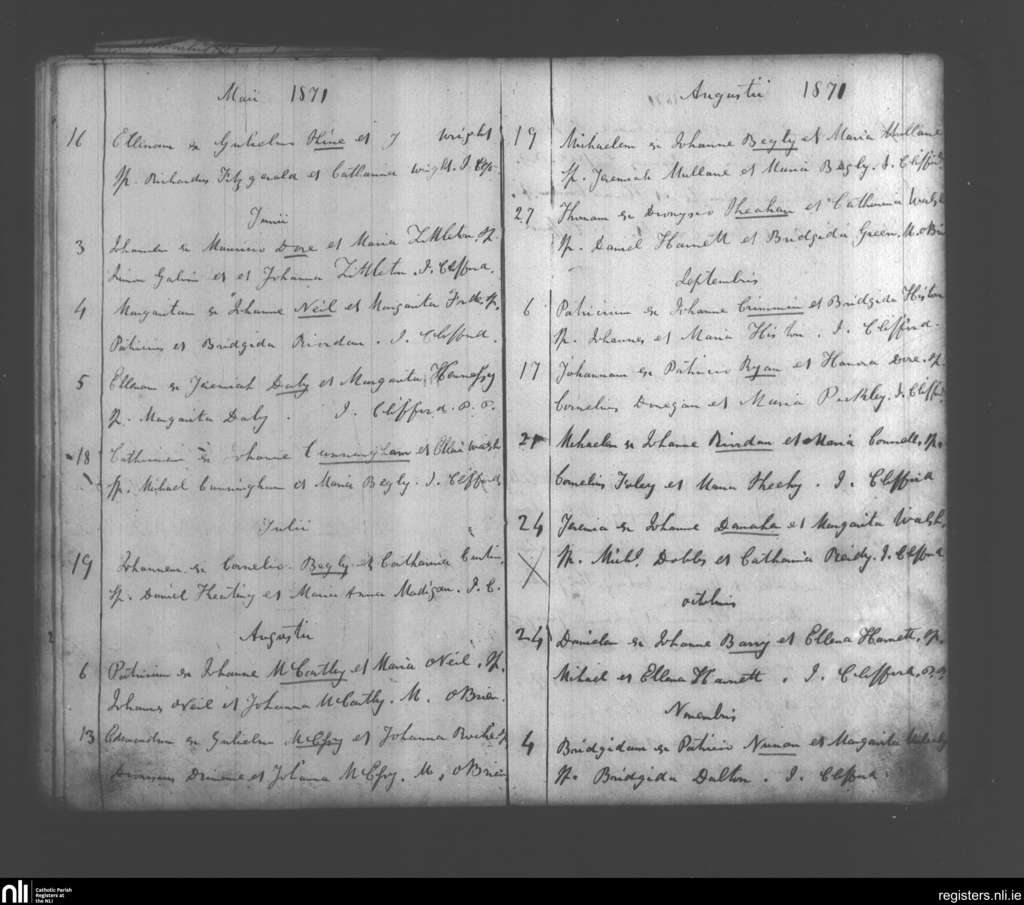 Maii 1871
16 Ellenam ex Gulielmo Hine et J Wright
Sp. Richardus Fitzgerald et Catharina Wright. I. Cp.
Junii
3 Johannem ex Mauricio Dore et Maria Littleton. Sp.
Simon Galvin et et Johanna Littleton. I. Clifford.
4 Margaritam ex Johanne Neil et Margarita Forde Sp.
Patricius et Bridgida Riordan. I. Clifford.
5 Ellenam ex Jeremiah Daly et Margarita Hennessy
Sp. Margarita Daly. I. Clifford. P. P.
18 Catherinam ex Johanne Cunningham et Ellena Walsh
Sp. Michael Cunningham et Maria Begly. I. Clifford
Julii
19 Johannem ex Cornelio Begly et Catharina Curtin.
Sp. Daniel Keating et Maria Anna Madigan. I. C.
Augustii
6 Patricium ex Johanne McCarthy et Maria oNeil. Sp.
Johannes oNeil et Johanna McCarthy. M. oBrien.
13 Edmundum ex Gulielmo McCoy et Johanna Roche Sp
Dionysius et Johanna McCoy. M. oBrien
Augustii 1871
19 Michaelem ex Johanne Begly et Maria Mullane
Sp. Jeremiah Mullane et Maria Begly. I. Clifford
27 Thomam ex Dionysio Sheahan et Catherina Walsh
Sp. Daniel Harnett et Bridgida Green. M. oBri
Septembris
6 Patricium ex Johanne Crimmin et Bridgida Histon
Sp. Johannes et Maria Histon. I. Clifford.
17 Johannam ex Patricio Ryan et Hanora Dore. Sp.
Cornelius Donegan et Maria I. Cliff
21 Michaelem ex Johanne Riordan et Maria Connell. Sp.
Cornelius Foley et Maria Sheehy. I. Clifford
24 Jeremia ex Johanne Danaher et Margarita Walsh.
Sp. Michl. Dobbs et Catharina Reidy. I. Clifford
octobris
24 Danielem ex Johanne Barry et Ellena Harnett. Sp.
Michael et Ellena Harnett. I. Clifford. P. P
Novembris
4 Bridgidam ex Patricio Nunan et Margarita
Sp. Bridgida Dalton. I. Clifford.
nli Catholic Parish Registers at the NLI
registers.nli.ie